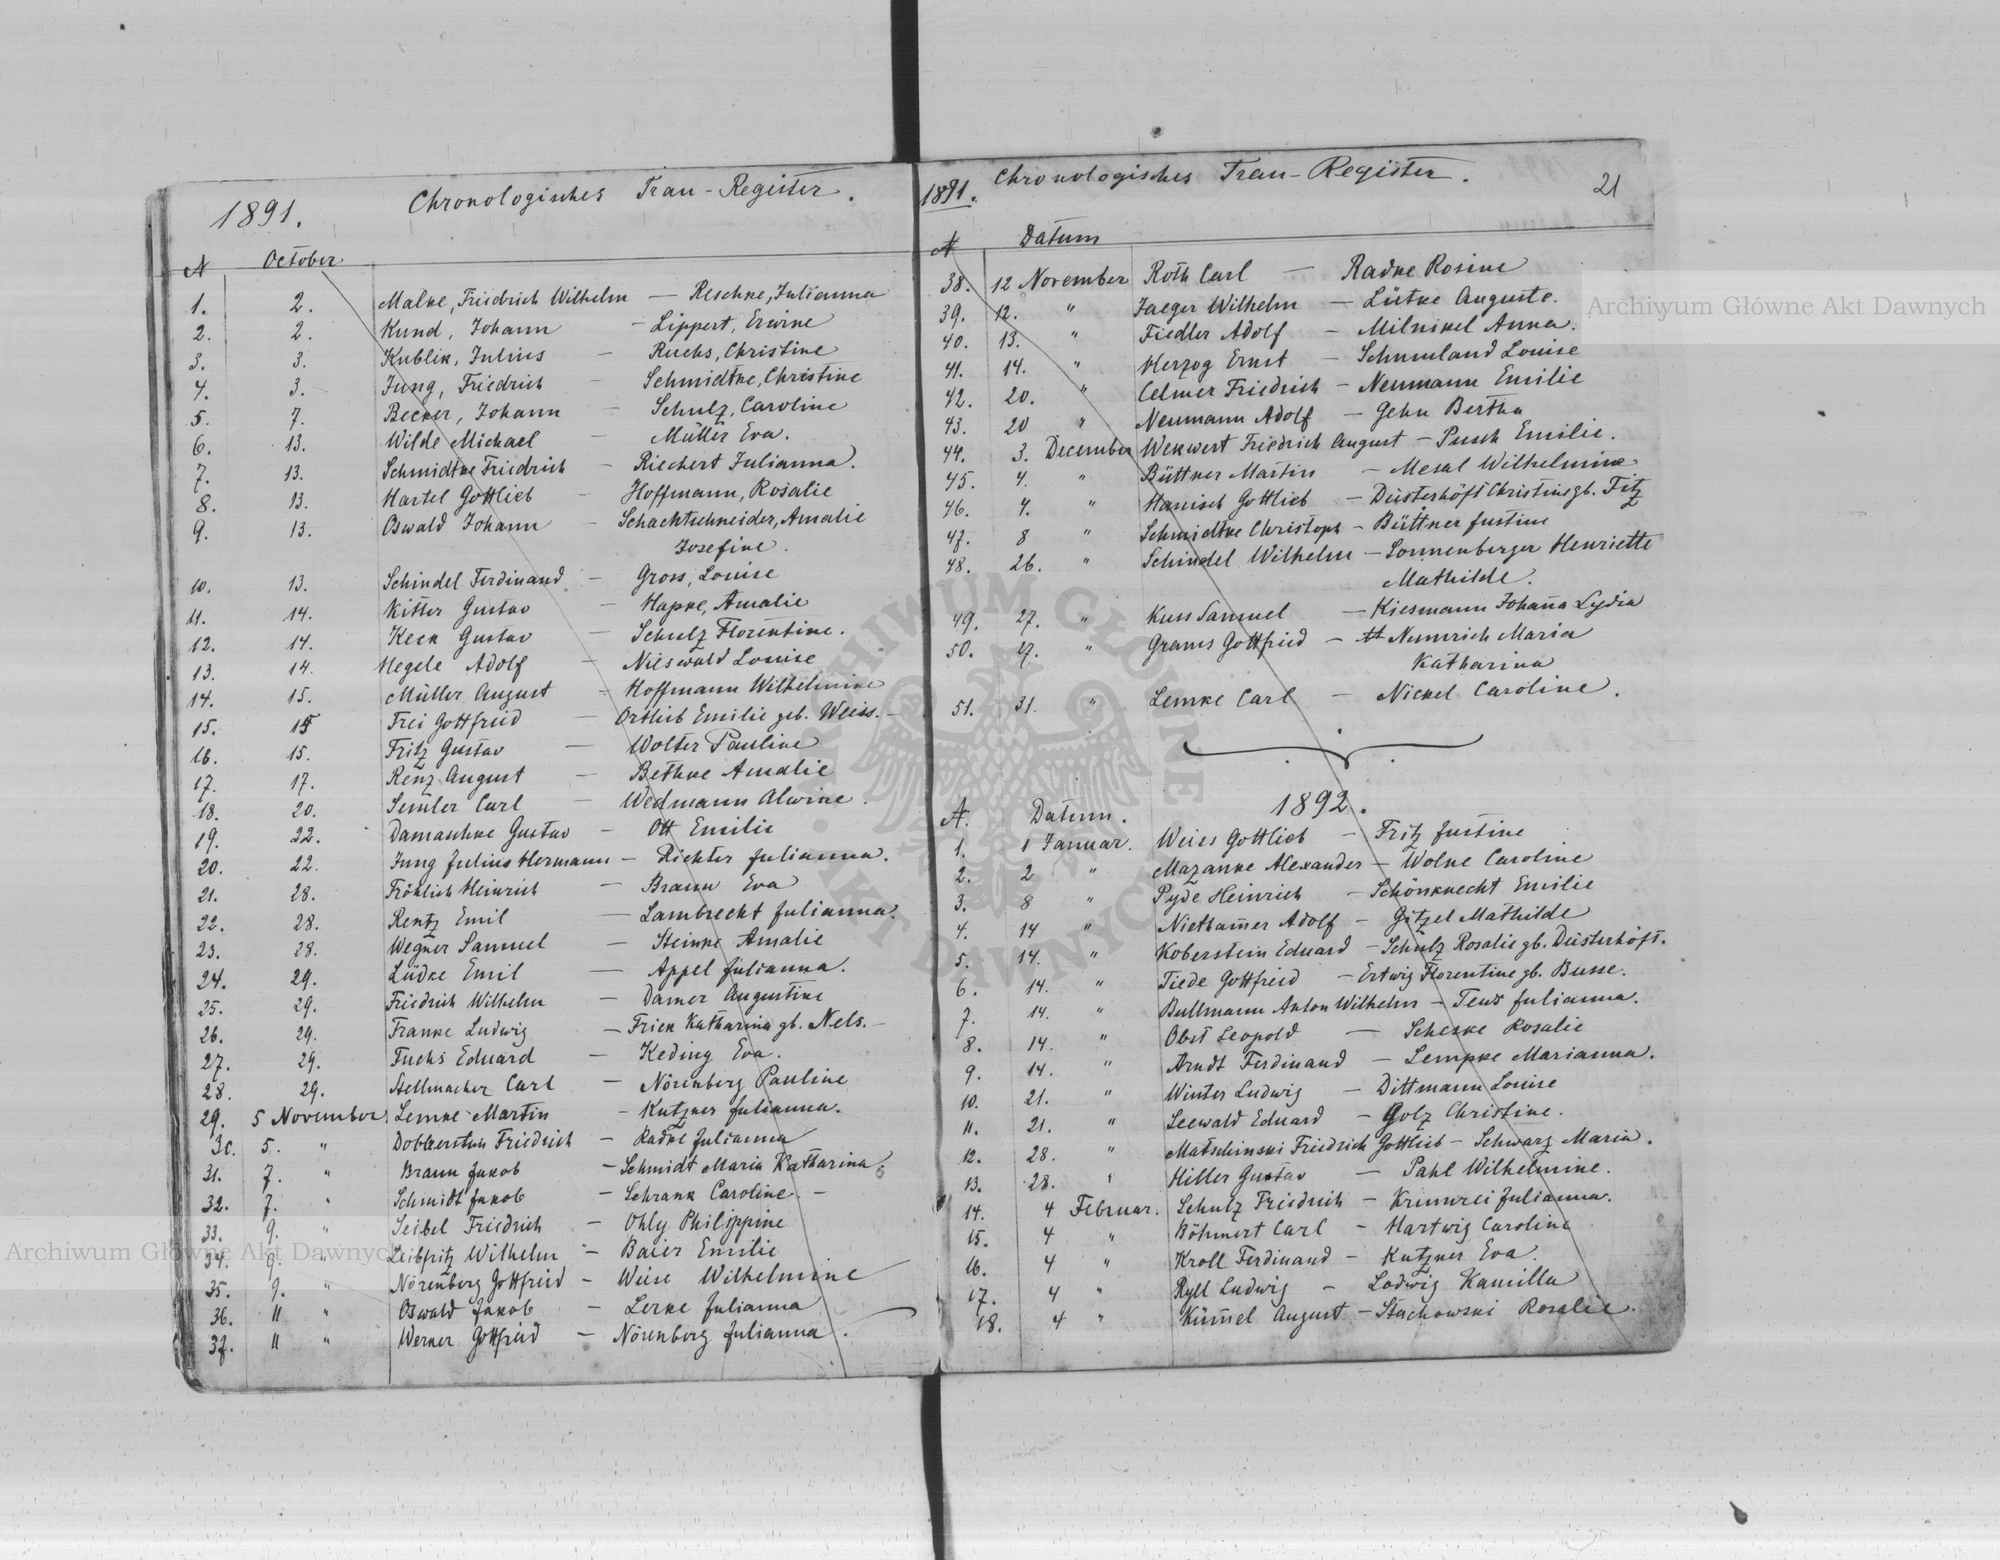 1891. Chronologisches Trau-Register.
N October
1. 2. Malke, Friedrich Wilhelm — Reschke, Julianna
2. 2. Kund, Johann — Lippert, Erwine
3. 3. Kublik, Julius — Ruchs, Christine
4. 3. Jung, Friedrich — Schmidtke, Christine
5. 7. Becker, Johann — Schulz, Caroline
6. 13. Wilde Michael — Müller Eva.
7. 13. Schmidtke Friedrich — Riechert Julianna.
8. 13. Hartel Gottlieb — Hoffmann, Rosalie
9. 13. Oswald Johann — Schachtschneider, Amalie
Josefine.
10. 13. Schindel Ferdinand — Gross, Louise
11. 14. Kitter Gustav — Hapke, Amalie
12. 14. Keck Gustav — Schulz Florentine.
13. 14. Hegele Adolf — Nieswald Louise
14. 15. Müller August — Hoffmann Wilhelmine
15. 15 Frei Gottfried — Ortlieb Emilie geb. Weiss. —
16. 15. Fritz Gustav — Wolter Pauline
17. 17. Renz August — Bethke Amalie
18. 20. Semler Carl — Wedmann Alwine.
19. 22. Damaschke Gustav — Ott Emilie
20. 22. Jung Julius Hermann — Richter Julianna.
21. 28. Fröhlich Heinrich — Braun Eva
22. 28. Rentz Emil — Lambrecht Julianna.
23. 28. Wegner Samuel — Steinke Amalie
24. 29. Lüdke Emil — Appel Julianna.
25. 29. Friedrich Wilhelm — Damer Augustine
26. 29. Franke Ludwig — Frick Katharina gb. Nels. —
27. 29. Fuchs Eduard — Keding Eva.
28. 29. Stellmacher Carl — Nörenberg Pauline
29. 5 November Lemke Martin — Kutzner Julianna.
30. 5. " Dobberstein Friedrich — Radke Julianna
31. 7. " Braun Jakob — Schmidt Maria Katharina
32. 7. " Schmidt Jakob — Schrank Caroline —
33. 9. " Seibel Friedrich — Ohly Philippine
34. 9. " Leibfritz Wilhelm — Baier Emilie
35. 9. " Nörenberg Gottfried — Weise Wilhelmine
36. 11 " Oswald Jakob — Lerke Julianna
37. 11 " Werner Gottfried — Nörenberg Julianna.
1891. Chronologisches Trau-Register. 21
N Datum
38. 12 November Roth Carl — Radke Rosine
39. 12. " Jaeger Wilhelm — Lütke Auguste.
40. 13. " Fiedler Adolf — Milnikel Anna.
41. 14. " Herzog Ernst — Schmuland Louise
42. 20. " Celmer Friedrich — Neumann Emilie
43. 20 " Neumann Adolf — Gehn Bertha
44. 3. December Wekwert Friedrich August — Pusch Emilie.
45. 4. " Büttner Martin — Mesal Wilhelmine
46. 4. " Hanisch Gottlieb — Düsterhöft Christine gb. Fitz
47. 8 " Schmidtke Christoph — Büttner Justine
48. 26. " Schindel Wilhelm — Sonnenberger Henriette
Mathilde.
49. 27. " Kuss Samuel — Kiesmann Johanna Lydia
50. 27. " Grams Gottfried — Nemnrich Maria
Katharina
51. 31. " Lemke Carl — Nickel Caroline.
1892.
N. Datum.
1. 1 Januar. Weiss Gottlieb — Fritz Justine
2. 2 " Mazanke Alexander — Wolke Caroline
3. 8 " Pyde Heinrich — Schönknecht Emilie
4. 14 " Nietham̄er Adolf — Gitzel Mathilde
5. 14. " Koberstein Eduard — Schulz Rosalie gb. Düsterhöft.
6. 14. " Tiede Gottfried — Ertwig Florentine gb. Busse.
7. 14. " Bullmann Anton Wilhelm — Teus Julianna.
8. 14. " Obst Leopold — Scheske Rosalie
9. 14. " Arndt Ferdinand — Lempke Marianna.
10. 21. " Winter Ludwig — Dittmann Louise
11. 21. " Seewald Eduard — Golz Christine.
12. 28. " Matschinski Friedrich Gottlieb — Schwarz Maria.
13. 28. " Hiller Gustav — Pahl Wilhelmine.
14. 4 Februar. Schulz Friedrich — Krimrei Julianna.
15. 4 " Böhmert Carl — Hartwig Caroline
16. 4 " Kroll Ferdinand — Kutzner Eva.
17. 4 " Ryll Ludwig — Ladwig Kamilla
18. 4 " Küm̄el August — Stachowski Rosalie.
Archiwum Główne Akt Dawnych
Archiwum Główne Akt Dawnych
ARCHIWUM GŁÓWNE AKT DAWNYCH